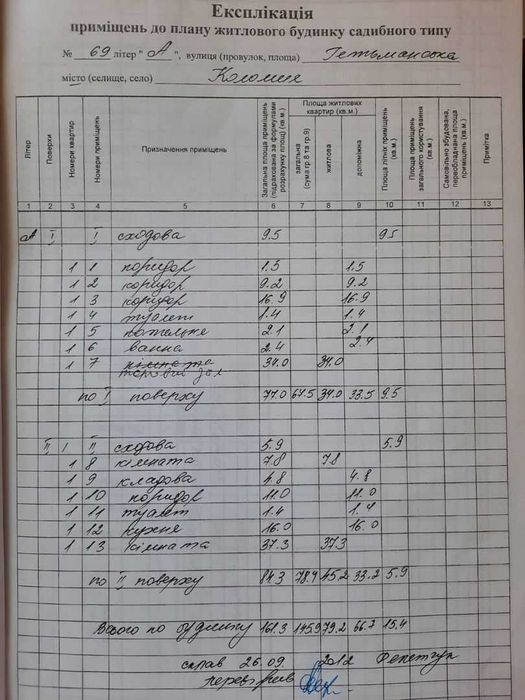 Експлікація
приміщень до плану житлового будинку садибного типу
№ 69 літер " А ", вулиця (провулок, площа) Гетьманська
місто (селище, село) Коломия
Літер Поверхи Номери квартир Номери приміщень Призначення приміщень Загальна площа приміщень (підрахована за формулами розрахунку площ) (кв.м.) Площа житлових квартир (кв.м.) загальна (сума гр 8 та гр.9) житлова допоміжна Площа літніх приміщень (кв.м.) Площа приміщень загального користування (кв.м.) Самовільно збудована, переобладнана площа приміщень (кв.м.) Примітка
1 2 3 4 5 6 7 8 9 10 11 12 13
А I I сходова 9.5 9.5
1 1 коридор 1.5 1.5
1 2 коридор 9.2 9.2
1 3 коридор 16.9 16.9
1 4 туалет 1.4 1.4
1 5 котельня 2.1 2.1
1 6 ванна 2.4 2.4
1 7 кімната 34.0 34.0
по I поверху 77.0 67.5 34.0 33.5 9.5
II I II сходова 5.9 5.9
1 8 кімната 7.8 7.8
1 9 кладова 4.8 4.8
1 10 коридор 11.0 11.0
1 11 туалет 1.4 1.4
1 12 кухня 16.0 16.0
1 13 кімната 37.3 37.3
по II поверху 84.3 78.4 45.2 33.2 5.9
Всього по будинку 161.3 145.9 79.2 66.7 15.4
склав 26.09. 2012
перевірив